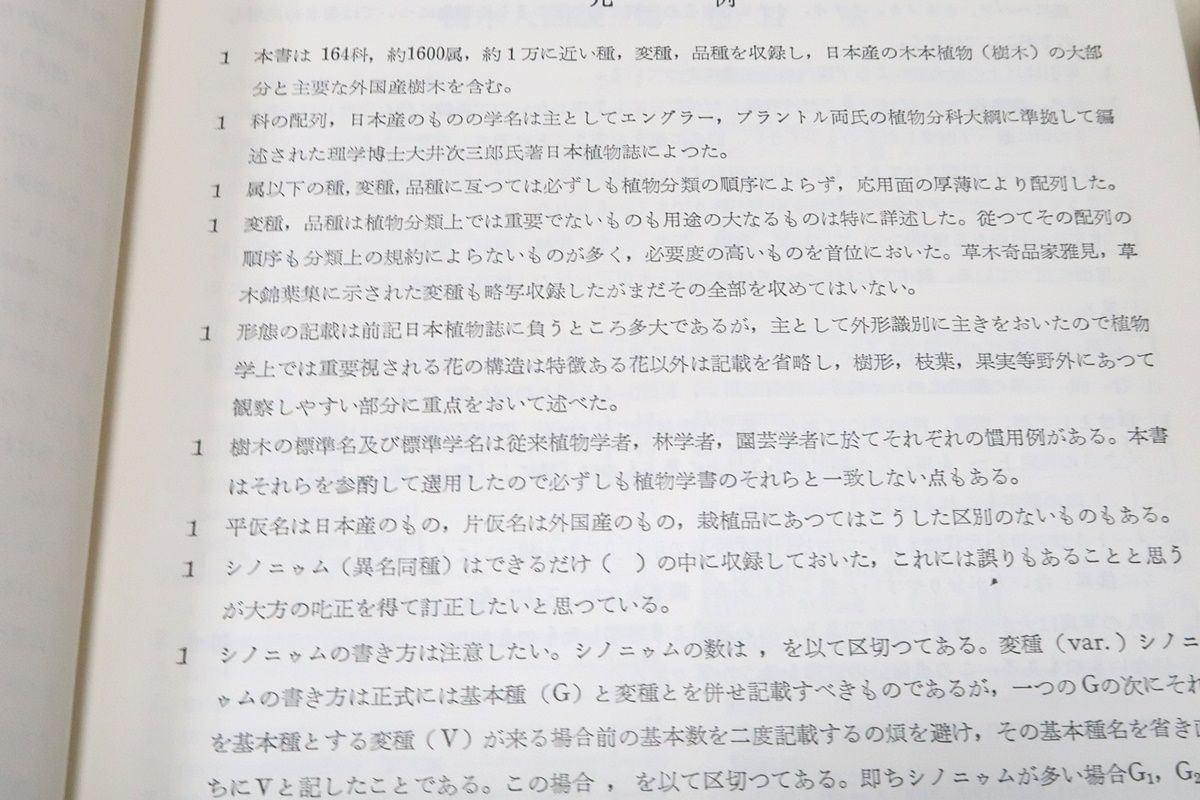 凡例
1 本書は 164科，約1600属，約1万に近い種，変種，品種を収録し，日本産の木本植物（樹木）の大部
分と主要な外国産樹木を含む。
1 科の配列，日本産のものの学名は主としてエングラー，プラントル両氏の植物分科大綱に準拠して編
述された理学博士大井次三郎氏著日本植物誌によつた。
1 属以下の種，変種，品種に亙つては必ずしも植物分類の順序によらず，応用面の厚薄により配列した。
1 変種，品種は植物分類上では重要でないものも用途の大なるものは特に詳述した。従つてその配列の
順序も分類上の規約によらないものが多く，必要度の高いものを首位においた。草木奇品家雅見，草
木錦葉集に示された変種も略写収録したがまだその全部を収めてはいない。
1 形態の記載は前記日本植物誌に負うところ多大であるが，主として外形識別に主きをおいたので植物
学上では重要視される花の構造は特徴ある花以外は記載を省略し，樹形，枝葉，果実等野外にあつて
観察しやすい部分に重点をおいて述べた。
1 樹木の標準名及び標準学名は従来植物学者，林学者，園芸学者に於てそれぞれの慣用例がある。本書
はそれらを参酌して選用したので必ずしも植物学書のそれらと一致しない点もある。
1 平仮名は日本産のもの，片仮名は外国産のもの，栽植品にあつてはこうした区別のないものもある。
1 シノニゥム（異名同種）はできるだけ（ ）の中に収録しておいた，これには誤りもあることと思う
が大方の叱正を得て訂正したいと思つている。
1 シノニゥムの書き方は注意したい。シノニゥムの数は ，を以て区切つてある。変種（var.）シノニ
ゥムの書き方は正式には基本種（G）と変種とを併せ記載すべきものであるが，一つのGの次にそれ
を基本種とする変種（V）が来る場合前の基本数を二度記載するの煩を避け，その基本種名を省き直
ちにVと記したことである。この場合 ，を以て区切つてある。即ちシノニゥムが多い場合G₁，G₂